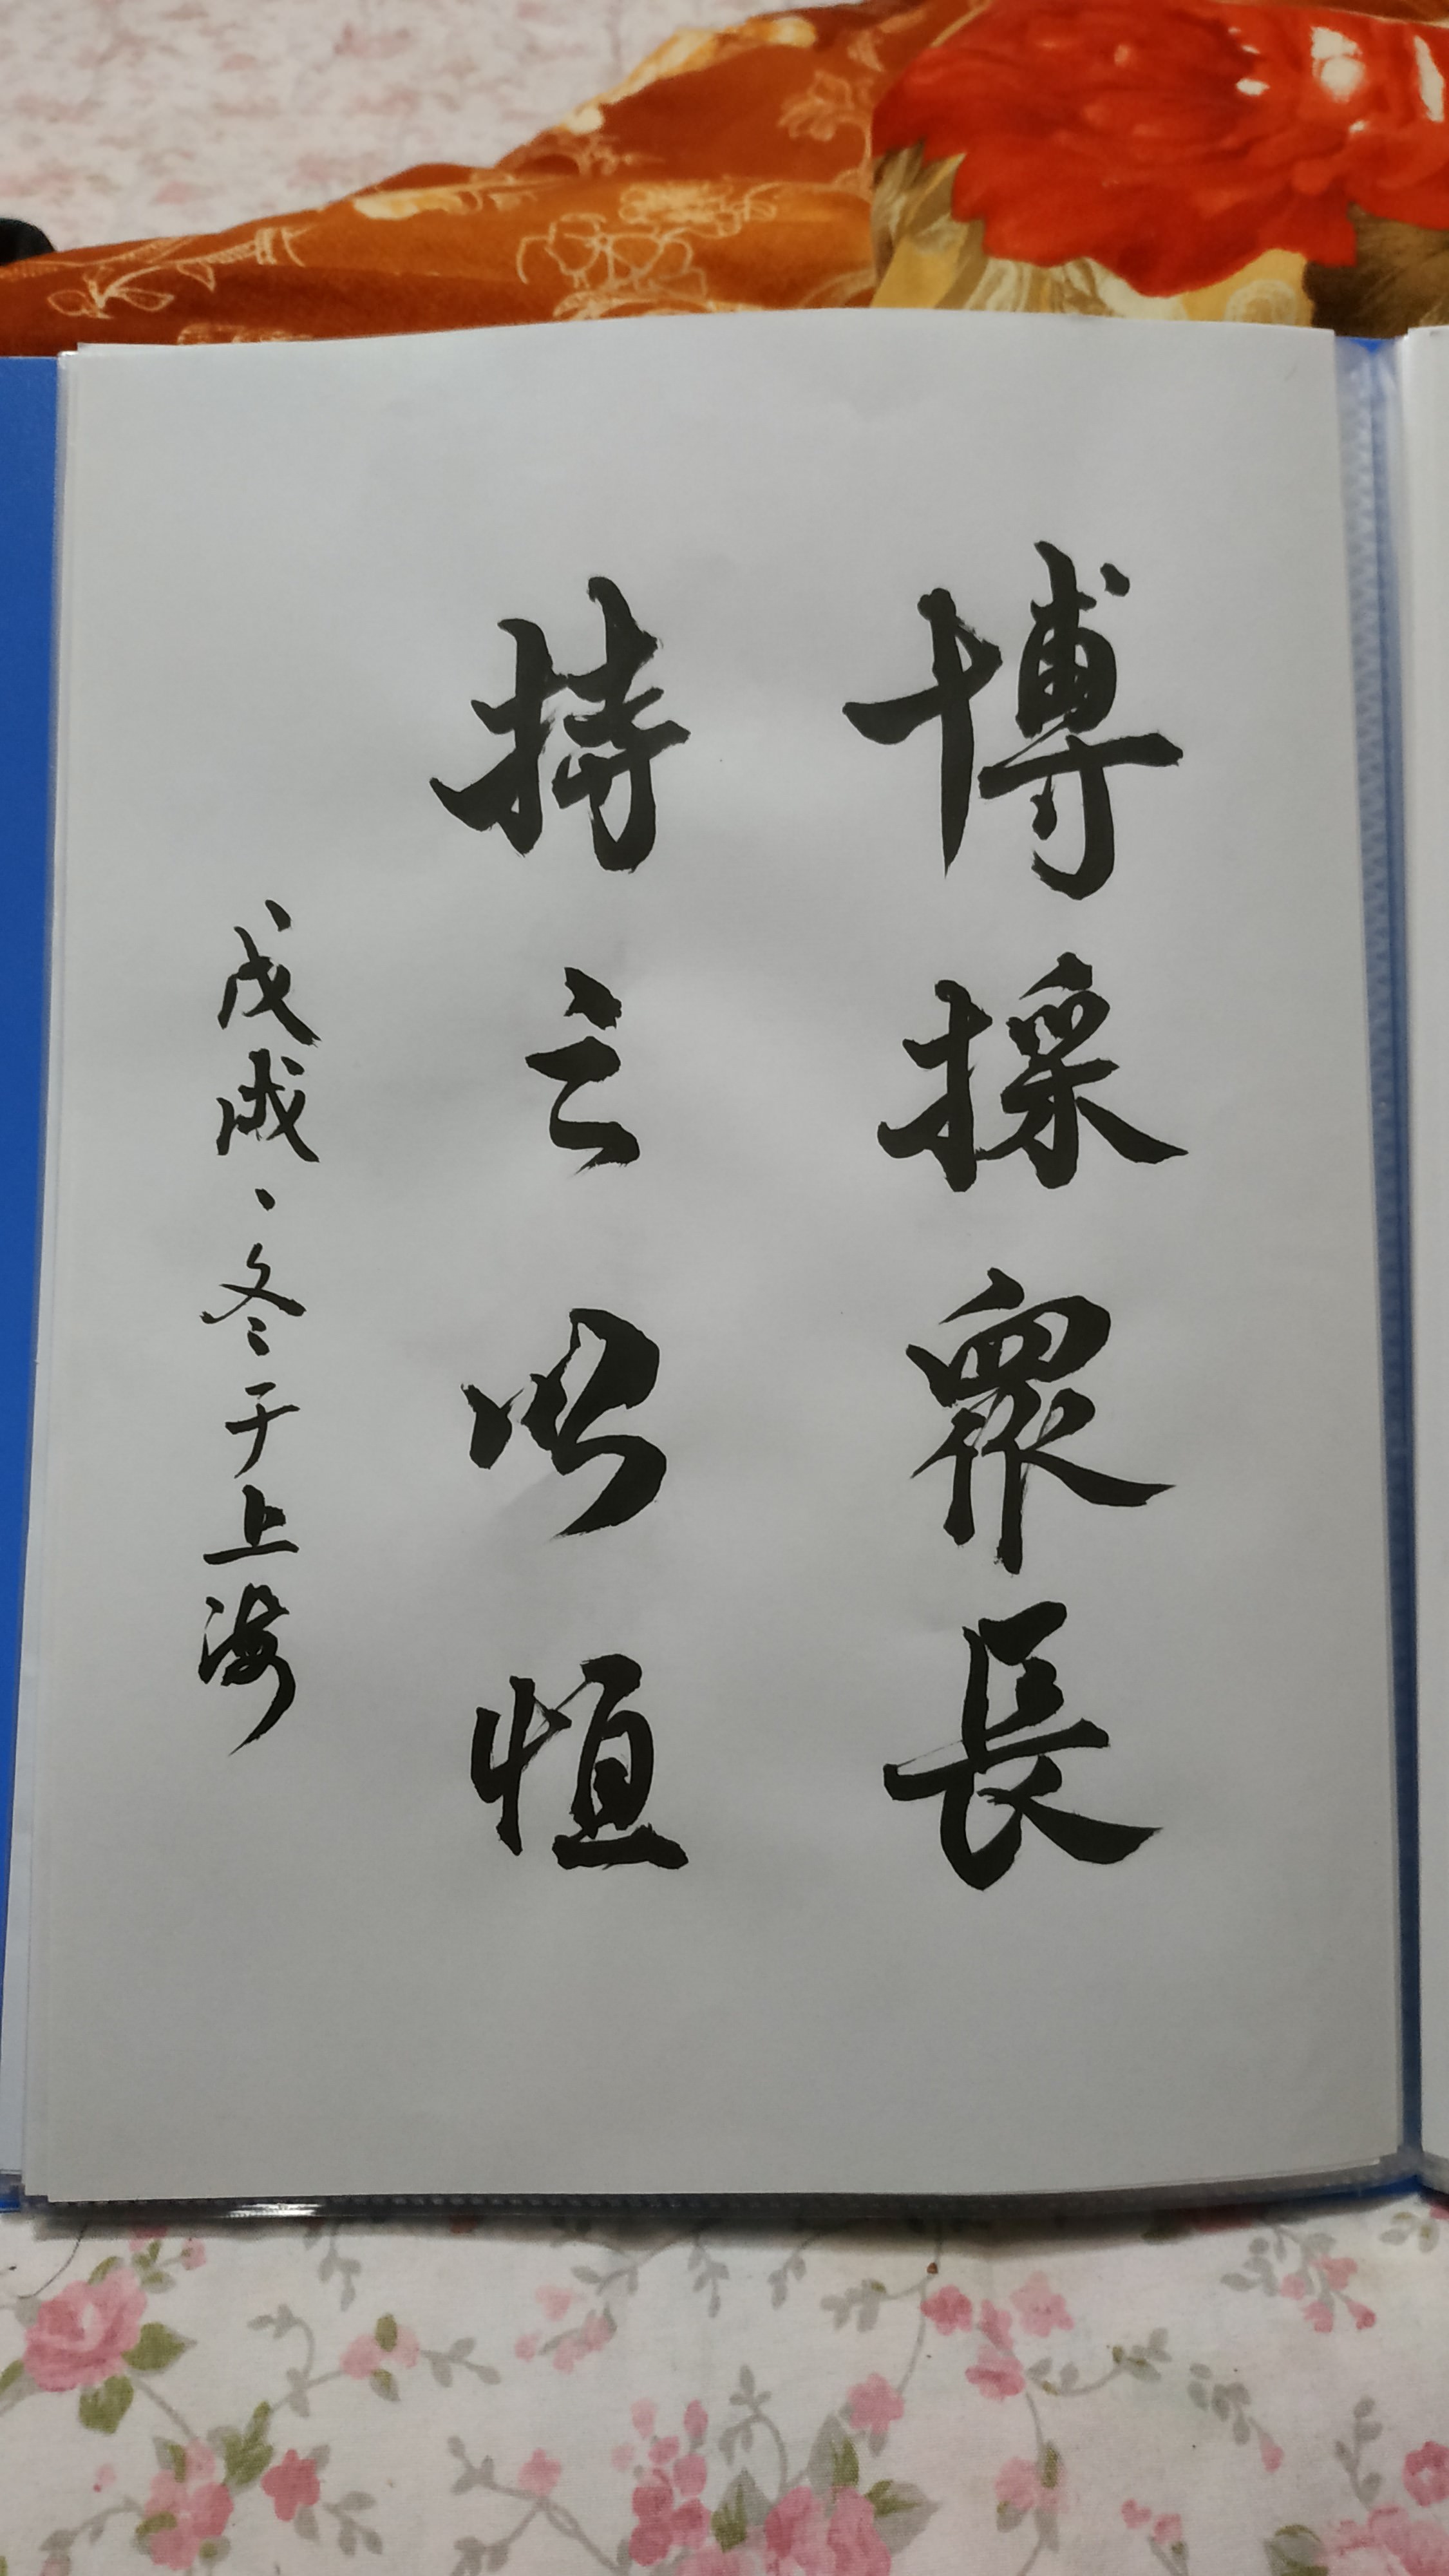 博採衆長
持之以恒
戊戌、冬于上海